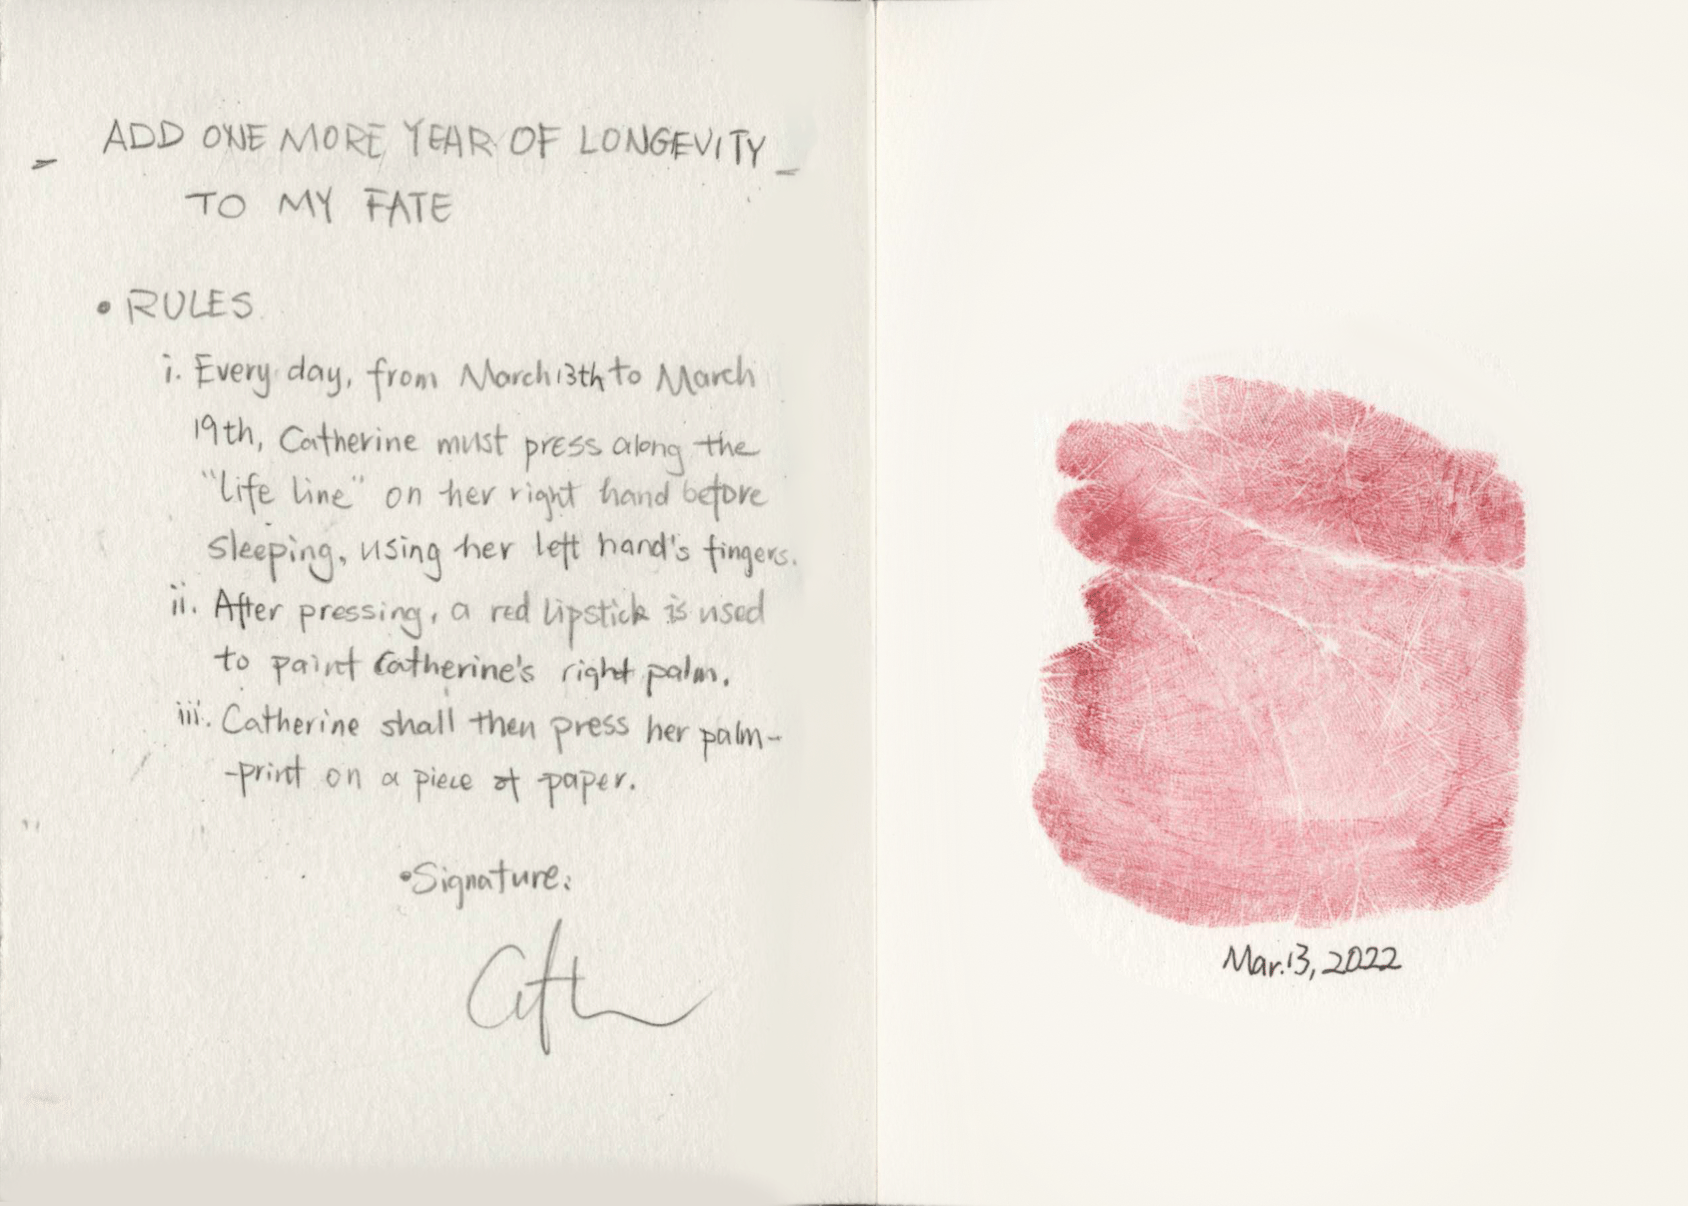 ADD ONE MORE YEAR OF LONGEVITY
TO MY FATE
• RULES
i. Every day, from March 13th to March
19th, Catherine must press along the
"life line" on her right hand before
sleeping, using her left hand's fingers.
ii. After pressing, a red lipstick is used
to paint Catherine's right palm.
iii. Catherine shall then press her palm-
-print on a piece of paper.
•Signature:
Cath
Mar.13, 2022